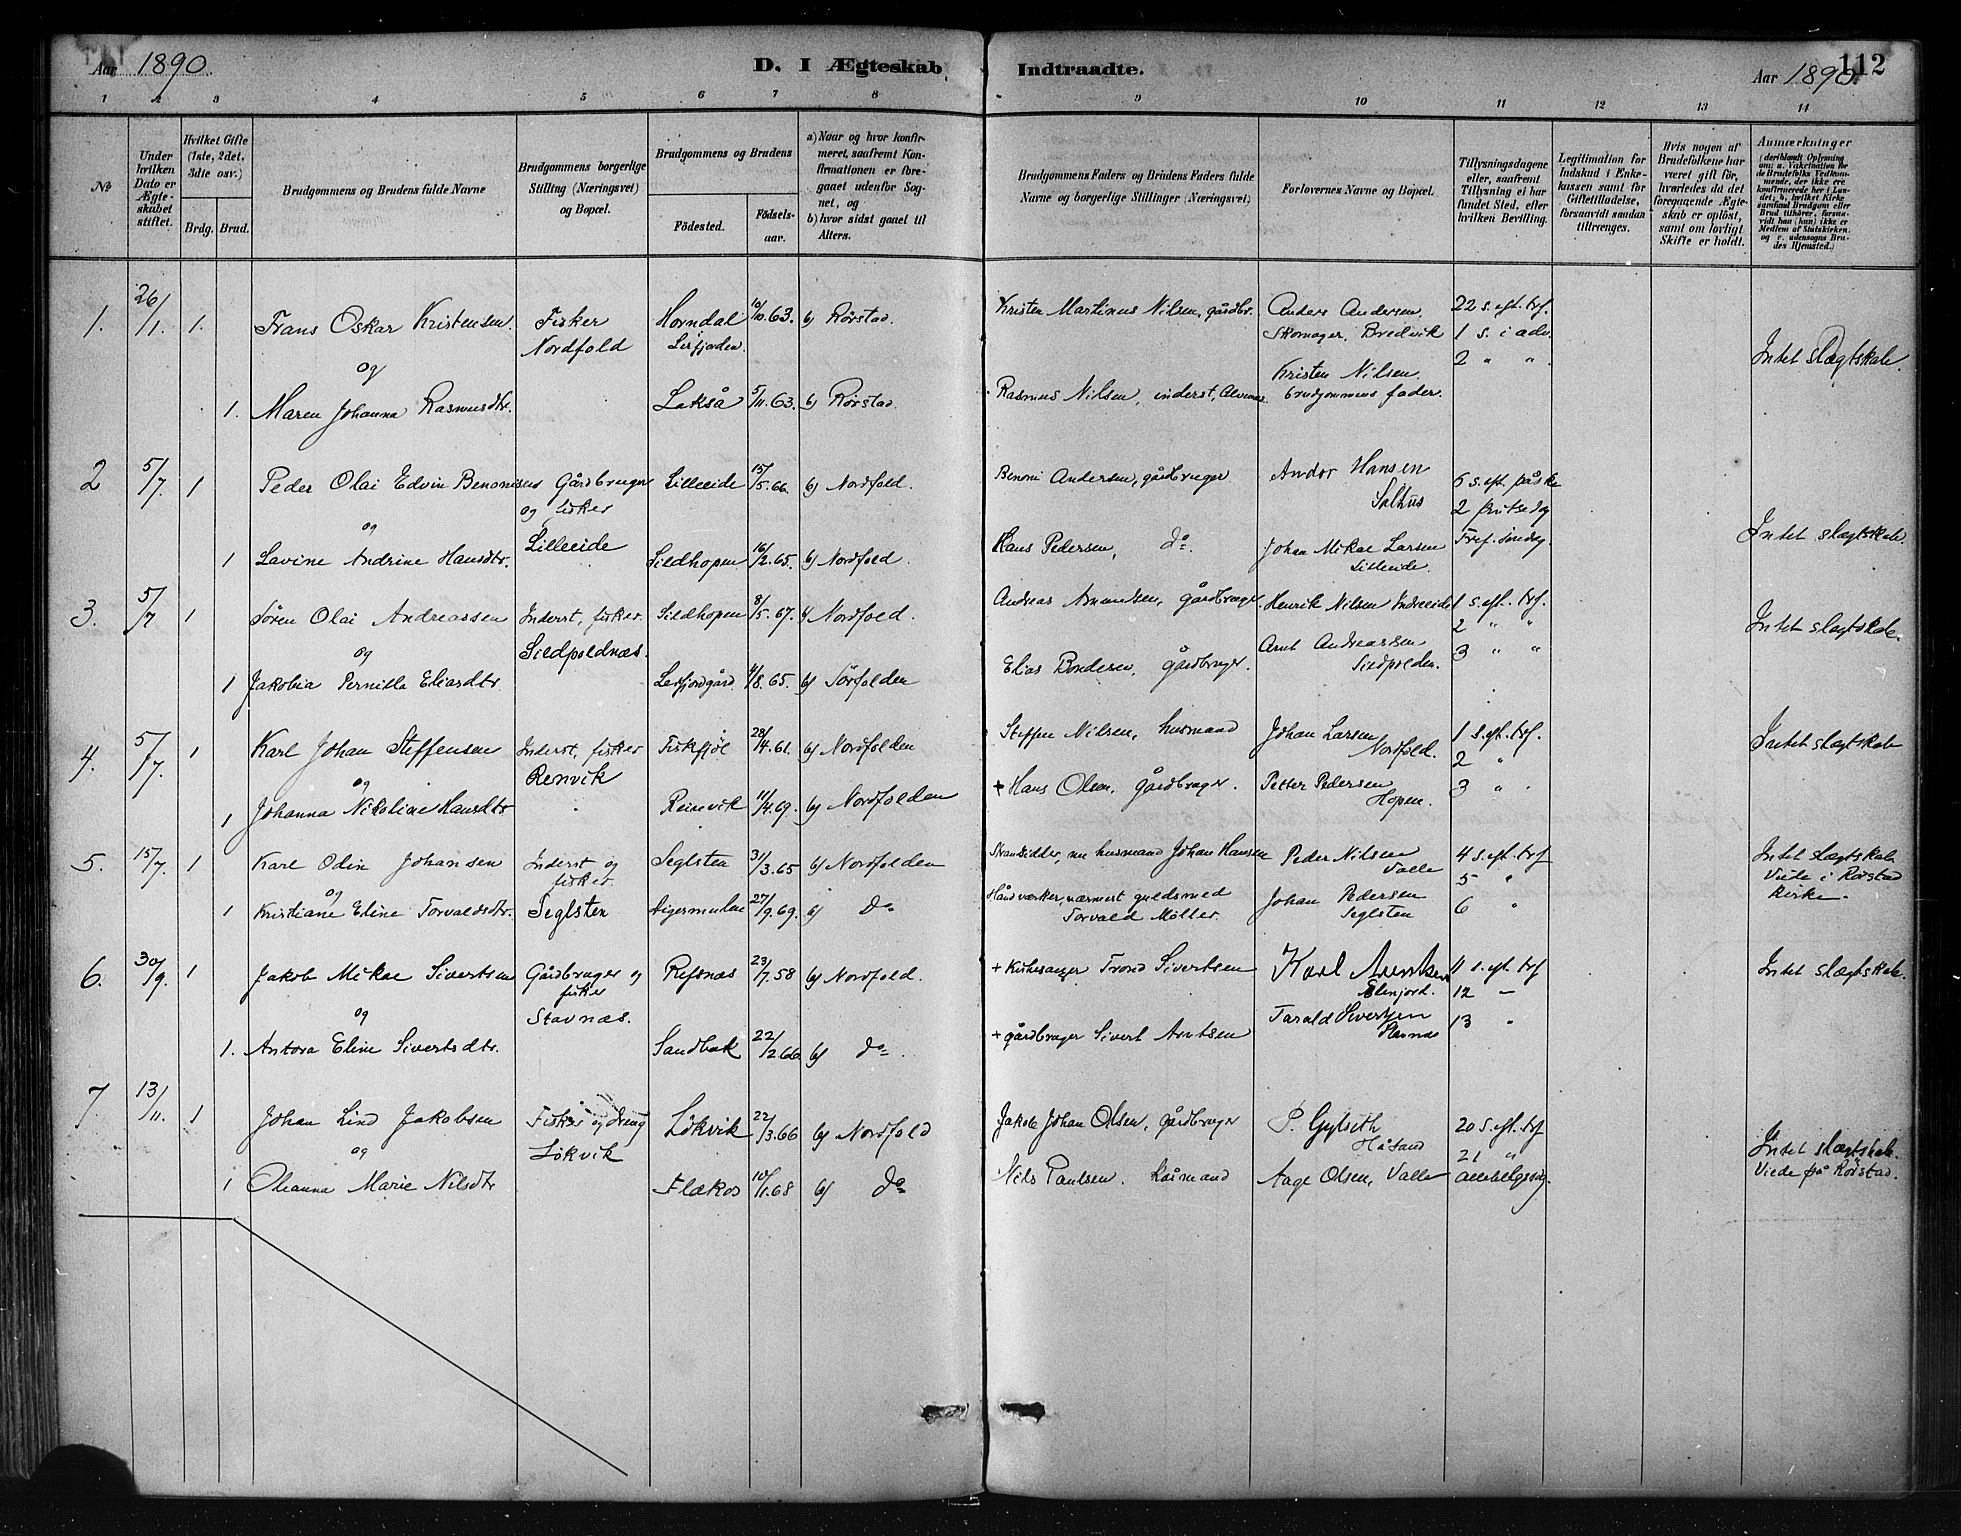 Aar 1890.
D. I Ægteskab Indtraadte.
Aar 1890.
112
1 2 3 4 5 6 7 8 9 10 11 12 13 14
No
Under hvilken Dato er Ægteskabet stiftet.
Hvilket Gifte (1ste, 2det, 3die osv.)
Brdg. Brud.
Brudgommens og Brudens fulde Navne
Brudgommens borgerlige Stilling (Næringsvei) og Bopæl.
Brudgommens og Brudens
Fødested.
Fødsels-aar.
a) Naar og hvor konfirmeret, saafremt Konfirmationen er foregaaet udenfor Sognet, og
b) hvor sidst gaaet til Alters.
Brudgommens Faders og Brudens Faders fulde Navne og borgerlige Stillinger (Næringsvei)
Forlovernes Navne og Bopæl.
Tillysningsdagene eller, saafremt Tillysning ei har fundet Sted, efter hvilken Bevilling.
Legitimation for Indskud i Enkekassen samt for Giftetilladelse, forsaavidt saadan tiltrænges.
Hvis nogen af Brudefolkene har været gift før, hvorledes da det foregaaende Ægteskab er opløst, samt om lovligt Skifte er holdt.
Anmærkninger
(deriblandt Oplysning om: a. Vakcination for de Brudefolks Vedkommende, der ikke ere konfirmerede her i Landet; b. hvilket Kirkesamfund Brudgom eller Brud tilhører, forsaavidt han (hun) ikke er Medlem af Statskirken, og c. udensogns Brudes Hjemsted.)
1. 26/1. 1. Frans Oskar Kristensen. Fisker Horndal 10/10.63. b) Rørstad. Kristen Martinus Nilsen, gårdbr. Anders Andersen, 22 s. eft. trf.
Nordfold Leirfjorden. Skomager, Bredvik 1 s. i adv.
og Kristen Nilsen, 2 " " Intet slægtskab.
1. Maren Johanna Rasmusdtr. Lakså 5/11.63. b) Rørstad. Rasmus Nilsen, inderst, Alvenes. brudgommens fader.
2 5/7. 1 Peder Olai Edvin Benonisen Gårdbruger Lilleeide 15/5.66. b) Nordfold. Benoni Andersen, gårdbruger Andor Hansen 6 s. eft. påske
og fisker Salhus 2 pintsedag
og Lilleeide Intet slægtskab.
1 Lavine Andrine Hansdtr. Sildhopen 16/2.65. b) Nordfold. Hans Pedersen, do. Johan Mikal Larsen Tref. søndag.
Lilleeide.
3. 5/7 1 Søren Olai Andreassen Inderst, fisker Sildhopen 8/5.67. b) Nordfold. Andreas Amundsen, gårdbruger. Henrik Nilsen Indreeide 1 s. eft. trf.
og Sildpoldnæs. 2 " " Intet slægtskab.
Arnt Andreassen 3 " "
1 Jakobia Pernilla Eliasdtr. Leirfjordgård 4/8.65. b) Sørfolden Elias Bondesen, gårdbruger. Sildpolden.
4. 5/7. 1 Karl Johan Steffensen Inderst, fisker Fiskfjøl 28/4.61. b) Nordfolden Steffen Nilsen, husmand Johan Larsen 1 s. eft. trf. Intet slægtskab
og Renvik Nordfold. 2 "
1 Johanna Nikoline Hansdtr. Reinvik 11/4.69. b) Nordfolden + Hans Olsen, gårdbruger. Petter Pedersen 3 " "
Hopen.
5. 15/7. 1 Karl Odin Johansen Inderst og Seglsten 31/3.65 b) Nordfolden Strandsidder, nu husmand Johan Hansen Peder Nilsen 4 s. eft. trf Intet slægtskab
og fisker. Valle 5 " Viede i Rørstad
1 Kristiane Eline Torvaldsdtr. Seglsten Digermulen 27/9.69. b) do Håndværker, nærmest guldsmed Johan Pedersen 6 " Kirke.
Torvald Møller. Seglsten
6. 30/9. 1 Jakob Mikal Sivertsen Gårdbruger og Refsnæs 23/7.58 b) Nordfold. + Kirkesanger Trond Sivertsen Karl Arntsen 11 s. eft. trf Intet slægtskab.
fisker Elenjord. 12 —
og Stavnæs. Tarald Sivertsen 13 "
1. Antora Eline Sivertsdtr. Sandbak 22/2.66 b) do. + gårdbruger Sivert Arntsen Stavnæs
7 13/11. 1 Johan Lind Jakobsen Fisker og dreng Løkvik 22/3.66 b) Nordfold Jakob Johan Olsen, gårdbruger P. Gylseth 20 s. eft. trf
og Løkvik Håsand 21 " Intet slægtskab.
1 Oleanna Marie Nilsdtr Flækos 10/11.68 b) do Nils Paulsen. husmand Aage Olsen, Valle allehelgesdag. Viede på Rørstad.